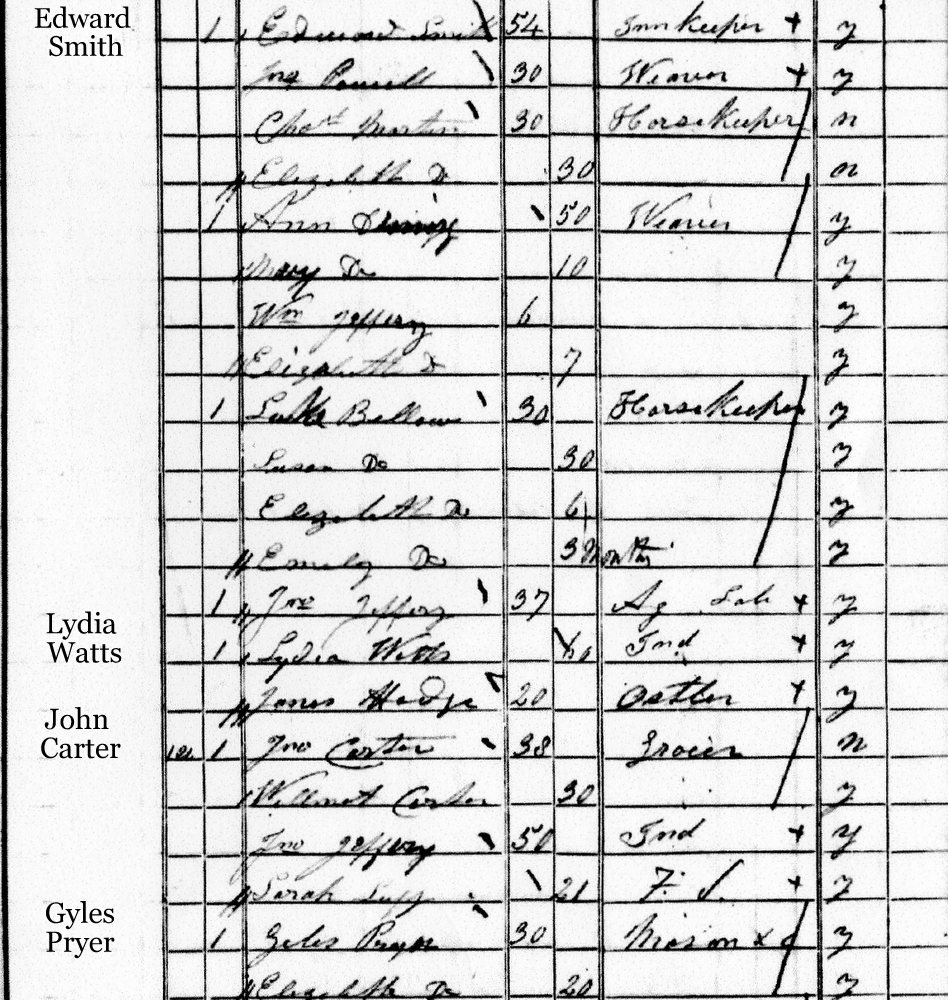 Edward Smith 1 Edward Smith 54 Innkeeper + y
Jno Powell 30 Weaver + y
Chas Martin 30 Horse Keeper n
Elizabeth Do 30 n
1 Ann 50 Weaver y
Mary Do 10 y
Wm Jeffery 6 y
Elizabeth Do 7 y
1 Luke Bellows 30 Horse Keeper y
Susan Do 30 y
Elizabeth Do 6 y
Emily Do 3 Months y
1 Jno Jeffery 37 Ag Lab + y
Lydia Watts 1 Lydia Watts 60 Ind + y
James Hodge 20 Ostler + y
John Carter 1 Jno Carter 38 Grocer n
Willmot Carter 30 y
Jno Jeffery 50 Ind + y
Sarah 21 F. S. + y
Gyles Pryer 1 Giles Pryer 30 Mason y
Elizabeth Do 20 y